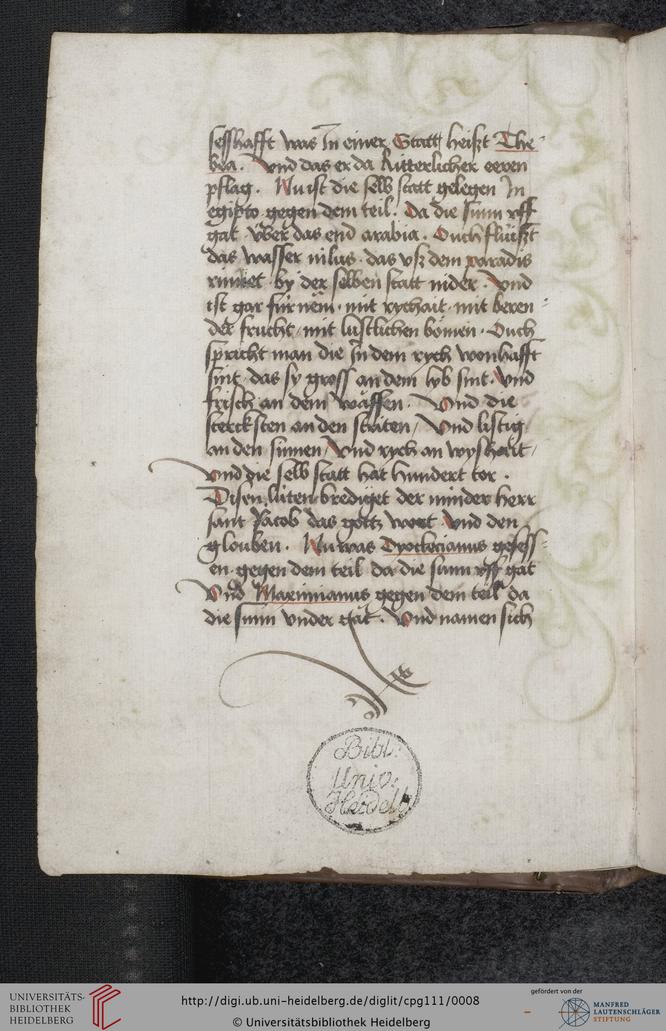 sesshafft was In einer Statt heist The-
bea. Vnd das er da Ritterlicher eeren
pflag. Nu ist die selb statt gelegen In
egipto gegen dem teil. Da die sunn vff
gat vber das end arabia. Ouch flüsst
das wasser nilus. das vsz dem paradis
rinnet by der selben statt nider. Vnd
ist gar für nem. mit rychait. mit beren-
der frucht. mit lustlichen bömen. Ouch
spricht man die In dem rych wonhafft
sint. das sy gross an dem lyb sint. Vnd
frisch an dem waffen. Vnd die
stercksten an den striten / Vnd listig
an den sinnen / Vnd rych an wyshait /
vnd die selb statt hat hundert tor.
Disen lüten brediget der minder herr
sant Jacob das gottz wort. Vnd den
glouben. Nu was Dyoclecianus gesess-
en gegen dem teil da die sunn vff gat
Vnd Maximianus gegen dem teil da
die sunn vnder gat. Vnd namen sich
Bibl.
Univ.
Heidelb.
UNIVERSITÄTS-
BIBLIOTHEK
HEIDELBERG
http://digi.ub.uni-heidelberg.de/diglit/cpg111/0008
© Universitätsbibliothek Heidelberg
gefördert von der
MANFRED
LAUTENSCHLÄGER
STIFTUNG